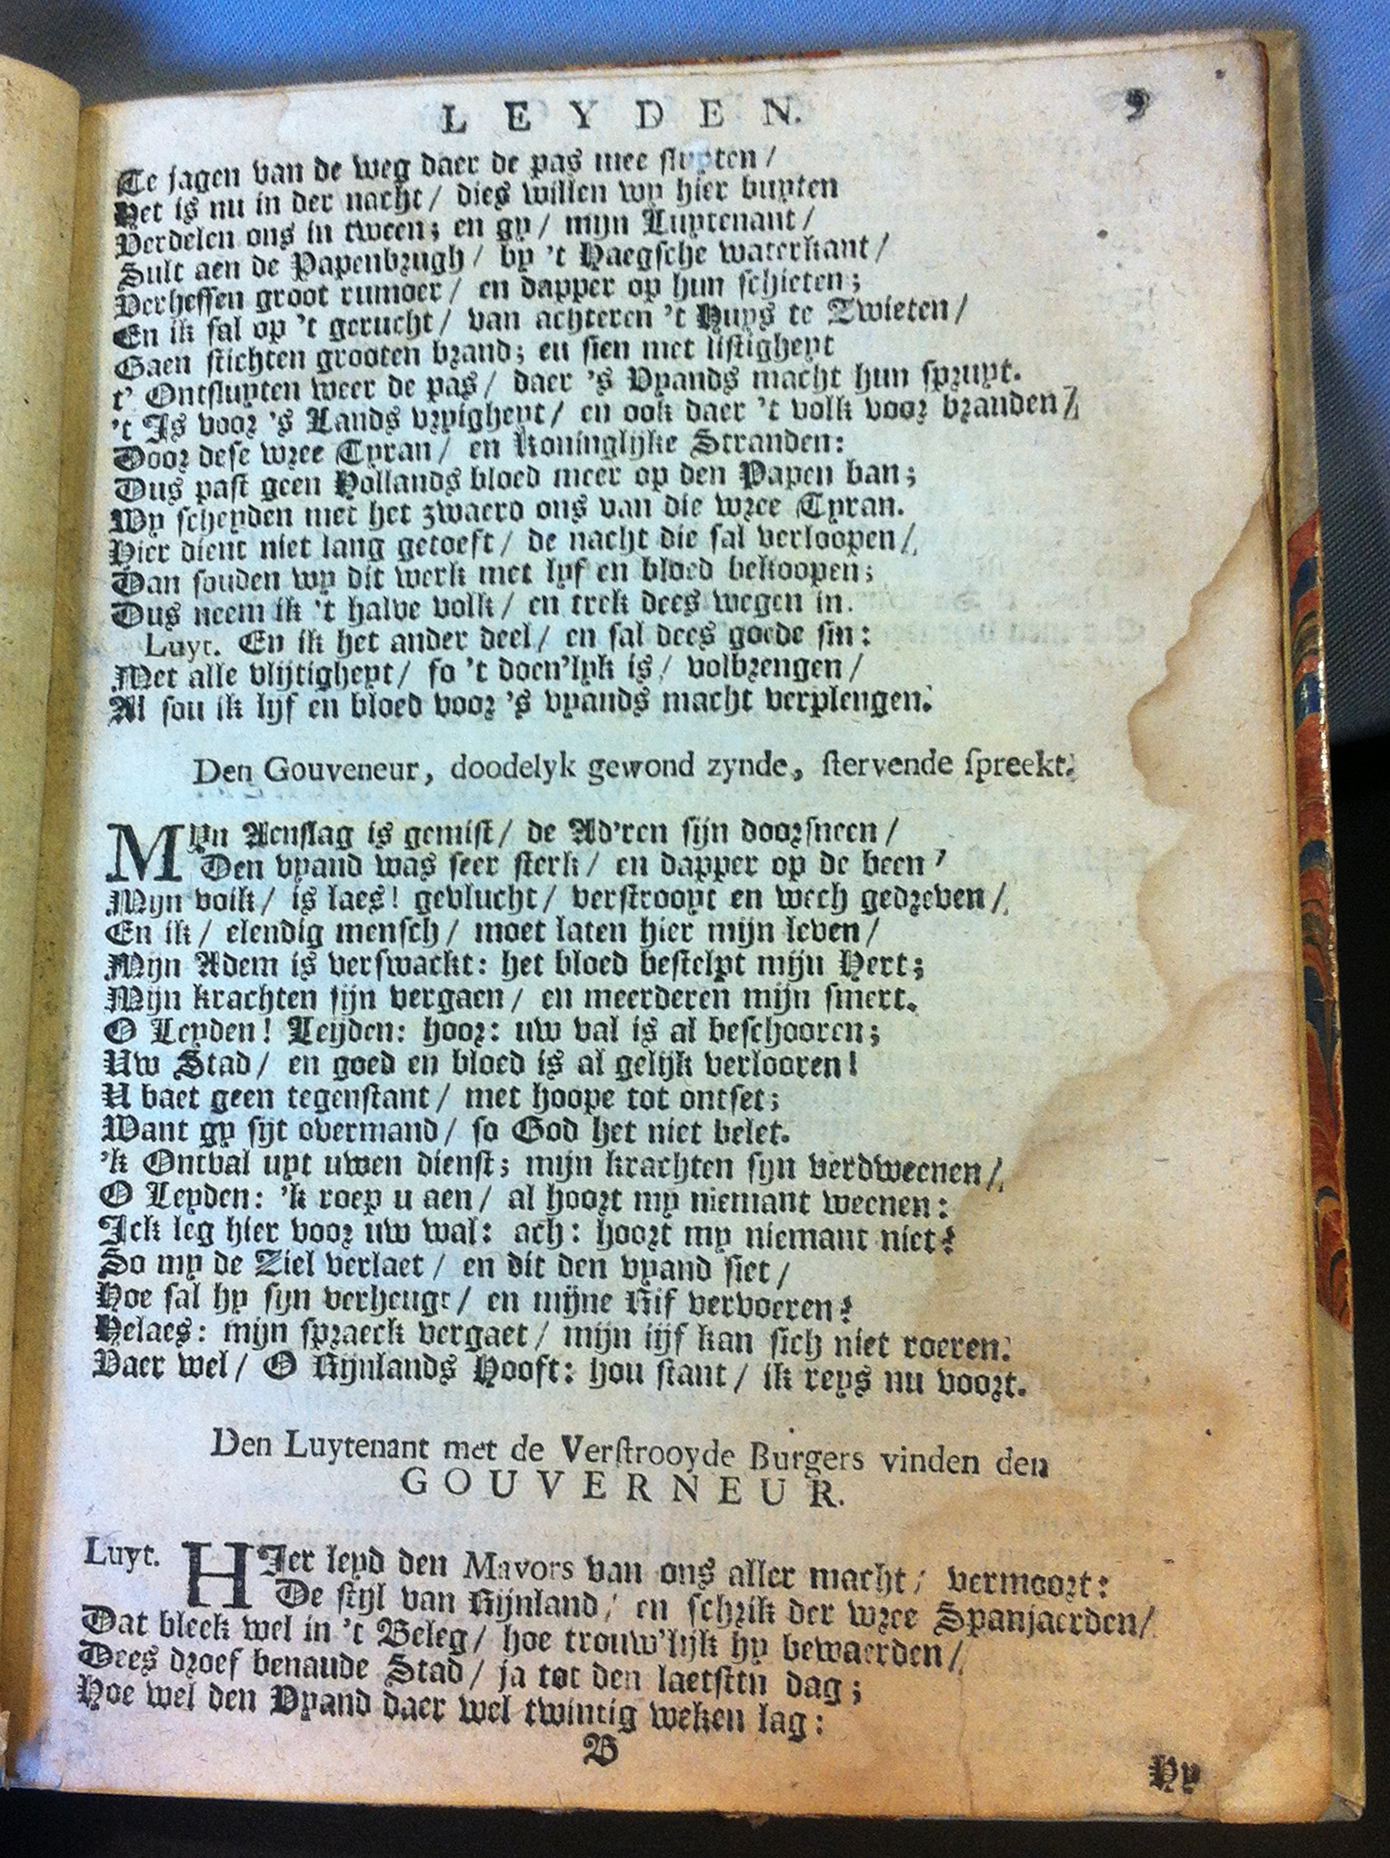 LEYDEN. 9
Te jagen van de weg daer de pas mee sluyten /
Het is nu in der nacht / dies willen wy hier buyten
Verdelen ons in tween; en gy / mijn Luytenant /
Sult aen de Papenbrugh / by 't Haegsche waterkant /
Verheffen groot rumoer / en dapper op hun schieten;
En ik sal op 't gerucht / van achteren 't Huys te Zwieten /
Gaen stichten grooten brand; en sien met listigheyt
t' Ontsluyten weer de pas / daer 's Vyands macht hun spruyt.
't Is voor 's Lands vryigheyt / en ook daer 't volk voor branden /
Door dese wree Tyran / en Koninglijke Stranden:
Dus past geen Hollands bloed meer op den Papen ban;
Wy scheyden met het zwaerd ons van die wree Tyran.
Hier dient niet lang getoeft / de nacht die sal verloopen /
Dan souden wy dit werk met lyf en bloed bekoopen;
Dus neem ik 't halve volk / en trek dees wegen in.
Luyt. En ik het ander deel / en sal dees goede sin:
Met alle vlijtigheyt / so 't doen'lyk is / volbrengen /
Al sou ik lijf en bloed voor 's vyands macht verplengen.
Den Gouveneur, doodelyk gewond zynde, stervende spreekt.
MYn Aenslag is gemist / de Ad'ren sijn doorsneen /
Den vyand was seer sterk / en dapper op de been /
Mijn volk / is laes! gevlucht / verstrooyt en wech gedreven /
En ik / elendig mensch / moet laten hier mijn leven /
Mijn Adem is verswackt: het bloed bestelpt mijn Hert;
Mijn krachten sijn vergaen / en meerderen mijn smert.
O Leyden! Leijden: hoor: uw val is al beschooren;
Uw Stad / en goed en bloed is al gelijk verlooren!
U baet geen tegenstant / met hoope tot ontset;
Want gy sijt overmand / so God het niet belet.
'k Ontval uyt uwen dienst; mijn krachten syn verdweenen /
O Leyden: 'k roep u aen / al hoort my niemant weenen:
Ick leg hier voor uw wal: ach: hoort my niemant niet?
So my de Ziel verlaet / en dit den vyand siet /
Hoe sal hy syn verheugt / en mijne Rif vervoeren?
Helaes: mijn spraeck vergaet / mijn lijf kan sich niet roeren.
Vaer wel / O Rijnlands Hooft: hou stant / ik reys nu voort.
Den Luytenant met de Verstrooyde Burgers vinden den
GOUVERNEUR.
Luyt. HIer leyd den Mavors van ons aller macht / vermoort:
De stijl van Rijnland / en schrik der wree Spanjaerden /
Dat bleek wel in 't Beleg / hoe trouw'lijk hy bewaerden /
Dees droef benaude Stad / ja tot den laetsttn dag;
Hoe wel den Vyand daer wel twintig weken lag:
B
Hy